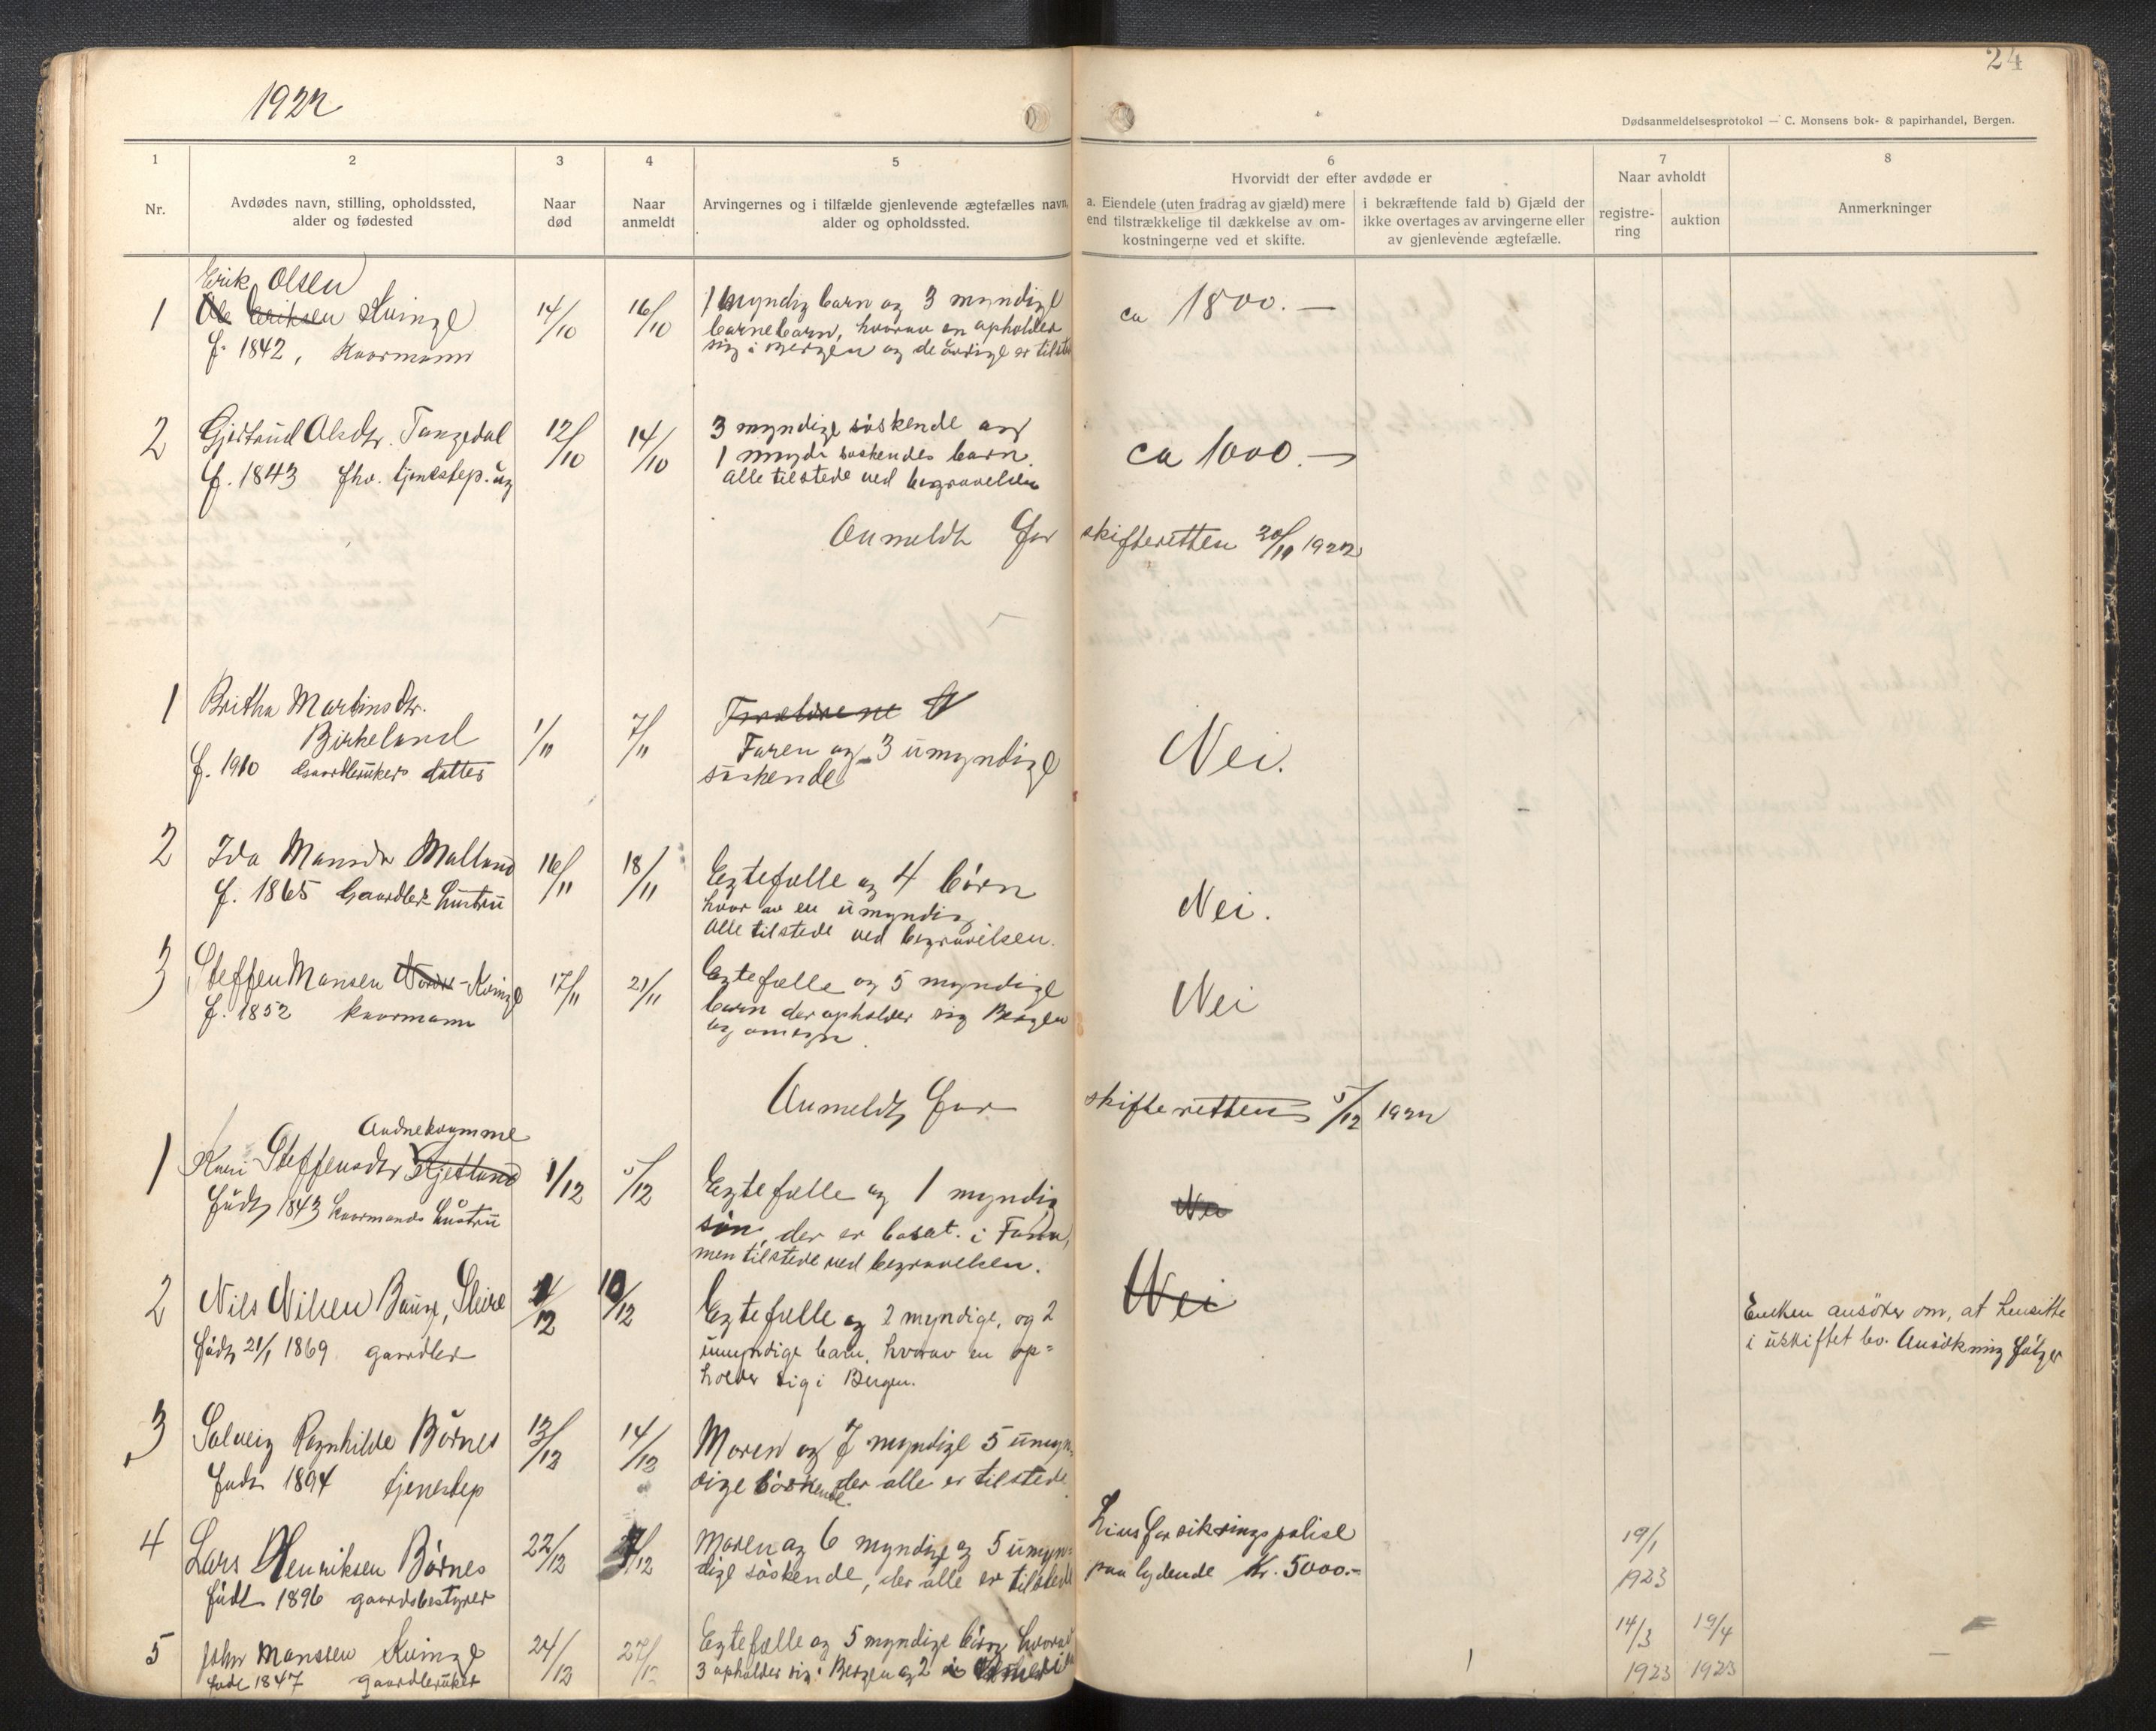 1922
24
Dødsanmeldelsesprotokol — C. Monsens bok- & papirhandel, Bergen.
1
2
3
4
5
6
7
8
Nr.
Avdødes navn, stilling, opholdssted,
alder og fødested
Naar
død
Naar
anmeldt
Arvingernes og i tilfælde gjenlevende ægtefælles navn,
alder og opholdssted.
Hvorvidt der efter avdøde er
a. Eiendele (uten fradrag av gjæld) mere
end tilstrækkelige til dækkelse av om-
kostningerne ved et skifte.
i bekræftende fald b) Gjæld der
ikke overtages av arvingerne eller
av gjenlevende ægtefælle.
Naar avholdt
registre-
ring
auktion
Anmerkninger
Erik Olsen
1 Ole Eriksen Kvinge 14/10 16/10 1 myndig barn og 3 myndige ca 1800.—
f. 1842, Kaarmann barnebarn, hvorav en opholder
sig i Bergen og de øvrige er tilste
2 Gjertrud Olsdtr. Tangedal 12/10 14/10 3 myndige søskende og ca 1000.—
f. 1843 fhv. tjenestep. ug 1 myndi søskendes barn.
Alle tilstede ved begravelsen
Anmeldt for skifteretten 1922
1 Britha Martinsdtr. Forældrene
Birkeland 1/11 7/11 Faren og 3 umyndige Nei.
f. 1910 Gaardbrukers datter søskende
2 Ida Mansdr Malland 16/11 18/11 Egtefælle og 4 børn Nei.
f. 1865 Gaardbr. hustru hvor av en umyndig
Alle tilstede ved begravelsen.
3 Steffen Mansen Kvinge 17/11 21/11 Egtefælle og 5 myndige Nei
f. 1852 kaarmann barn der opholder sig Bergen
og omegn.
Anmeldt for skifteretten 5/12 1922
Andnekvamme
1 Kari Steffensdtr 1/12 5/12 Egtefælle og 1 myndig Nei
Født 1843 kaarmands hustru søn, der er bosat i Fana,
men tilstede ved begravelsen.
2 Nils Nilsen Bauge, Sleire /12 10/12 Egtefælle og 2 myndige, og 2 Nei Enken ansøker om, at hensitte
født 21/1 1869 gaardbr umyndige barn, hvorav en op- i uskiftet bo. Ansøkning følger
holder sig i Bergen.
3 Solveig Ragnhilde Børnes 13/12 14/12 Moren og 7 myndige 5 umyn-
født 1894 tjenestep dige søskende der alle er tilstede
4 Lars Henriksen Børnes 22/12 /12 Moren og 6 myndige og 5 umyn- Livsforsikringspolise 19/1
født 1896 gaardsbestyrer dige søskende, der alle er tilstede paa lydende Kr. 5000.- 1923
5 John Mansen Kvinge 24/12 27/12 Egtefælle og 5 myndige børn hvorav 14/3 19/4
født 1847 gaardbruker 3 opholder sig i Bergen og 2 i 1923 1923